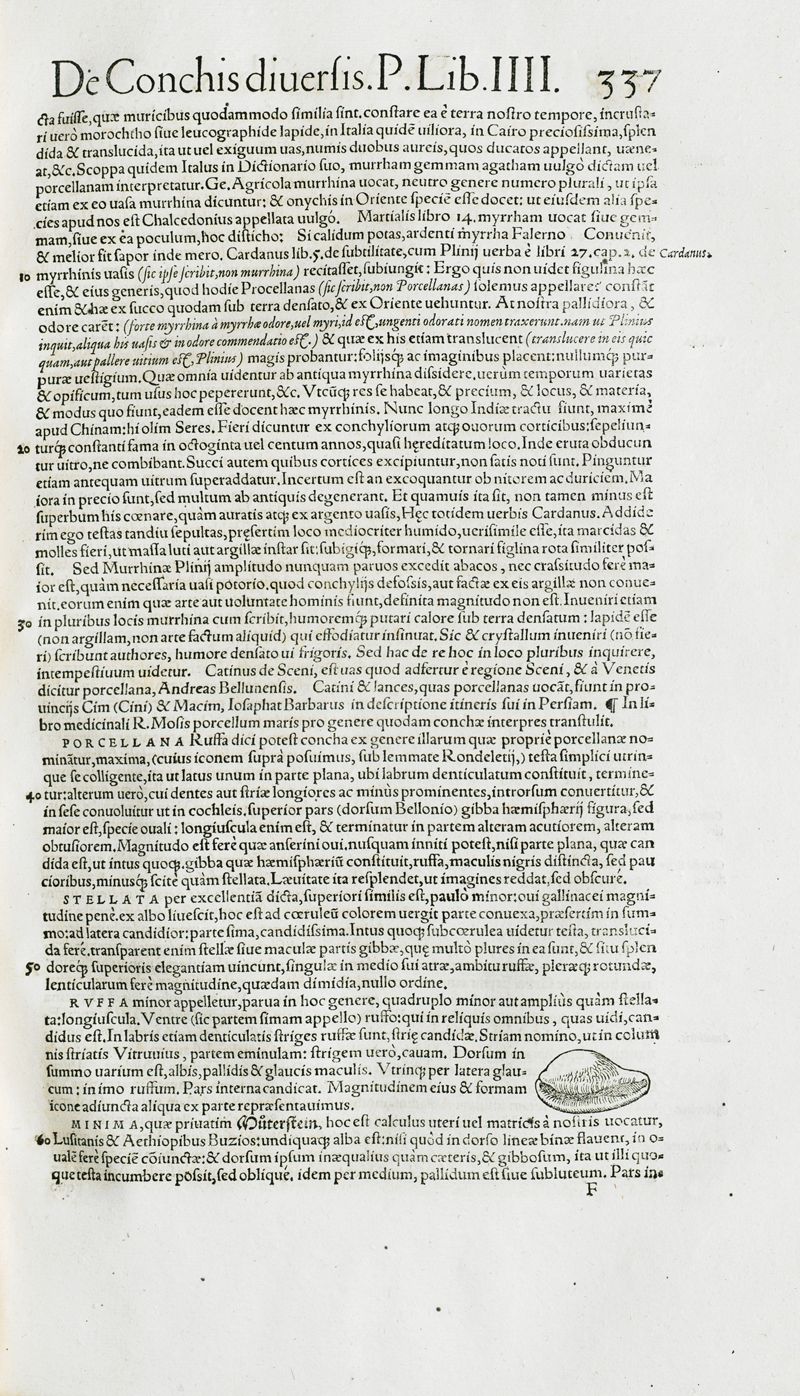 De Conchis diuerſis. P. Lib. IIII. 337
cta fuiſſe, quæ muricibus quodammodo ſimilia ſint. conſtare ea è terra noſtro tempore, incruſta-
ri uerò morochtho ſiue leucographide lapide, in Italia quidẽ uiliora, in Cairo precioſiſsima, ſplen
dida & translucida, ita ut uel exiguum uas, numis duobus aureis, quos ducatos appellant, uæne-
at, &c. Scoppa quidem Italus in Dictionario ſuo, murrham gemmam agatham uulgò dictam uel
porcellanam interpretatur. Ge. Agricola murrhina uocat, neutro genere numero plurali, ut ipſa
etiam ex eo uaſa murrhina dicuntur: & onychis in Oriente ſpeciẽ eſſe docet: ut eiuſdem alia ſpe-
cies apud nos eſt Chalcedonius appellata uulgò. Martialis libro 14. myrrham uocat ſiue gem-
mam, ſiue ex ea poculum, hoc diſticho: Si calidum potas, ardenti myrrha Falerno Conuenit,
& melior fit ſapor inde mero. Cardanus lib. 5. de ſubtilitate, cum Plinij uerba è libri 27. cap. 2. de Cardanus.
10 myrrhinis uaſis (ſic ipſe ſcribit, non murrhina) recitaſſet, ſubiungit: Ergo quis non uidet figulina hæc
eſſe, & eius generis, quod hodie Procellanas (ſic ſcribit, non Porcellanas) ſolemus appellare? conſtãt
enim & hæ ex ſucco quodam ſub terra denſato, & ex Oriente uehuntur. At noſtra pallidiora, &
odore carẽt: (forte myrrhina à myrrhæ odore, uel myri, id eſt, ungenti odorati nomen traxerunt. nam ut Plinius
inquit, aliqua his uaſis & in odore commendatio eſt.) & quæ ex his etiam translucent (translucere in eis quic
quam, aut pallere uitium eſt, Plinius) magis probantur: folijsq́; ac imaginibus placent: nullumq́; pur-
puræ ueſtigium. Quæ omnia uidentur ab antiqua myrrhina diſsidere. uerùm temporum uarietas
& opificum, tum uſus hoc pepererunt, &c. Vtcũq; res ſe habeat, & precium, & locus, & materia,
& modus quo fiunt, eadem eſſe docent hæc myrrhinis. Nunc longo Indiæ tractu fiunt, maximè
apud Chinam: hi olim Seres. Fieri dicuntur ex conchyliorum atq; ouorum corticibus: ſepeliun-
20 turq́; conſtanti fama in octoginta uel centum annos, quaſi hęreditatum loco. Inde eruta obducun
tur uitro, ne combibant. Succi autem quibus cortices excipiuntur, non ſatis noti ſunt. Pinguntur
etiam antequam uitrum ſuperaddatur. Incertum eſt an excoquantur ob nitorem ac duriciem. Ma
iora in precio ſunt, ſed multum ab antiquis degenerant. Et quamuis ita ſit, non tamen minus eſt
ſuperbum his cœnare, quàm auratis atq; ex argento uaſis, Hęc totidem uerbis Cardanus. Addide
rim ego teſtas tandiu ſepultas, pręſertim loco mediocriter humido, ueriſimile eſſe, ita marcidas &
molles fieri, ut maſſa luti aut argillæ inſtar ſit: ſubigiq́;, formari, & tornari figlina rota ſimiliter poſ-
ſit. Sed Murrhinæ Plinij amplitudo nunquam paruos excedit abacos, nec craſsitudo ferè ma-
ior eſt, quàm neceſſaria uaſi potorio. quod conchylijs defoſsis, aut factæ ex eis argillæ non conue-
nit. eorum enim quæ arte aut uoluntate hominis fiunt, definita magnitudo non eſt. Inueniri etiam
30 in pluribus locis murrhina cum ſcribit, humoremq́; putari calore ſub terra denſatum: lapidẽ eſſe
(non argillam, non arte factum aliquid) qui effodiatur inſinuat. Sic & cryſtallum inueniri (nõ fie-
ri) ſcribunt authores, humore denſato ui frigoris. Sed hac de re hoc in loco pluribus inquirere,
intempeſtiuum uidetur. Catinus de Sceni, eſt uas quod adfertur è regione Sceni, & à Venetis
dicitur porcellana, Andreas Bellunenſis. Catini & lances, quas porcellanas uocãt, fiunt in pro-
uincijs Cim (Cini) & Macim, Ioſaphat Barbarus in deſcriptione itineris ſui in Perſiam. ¶ In li-
bro medicinali R. Moſis porcellum maris pro genere quodam conchæ interpres tranſtulit.
PORCELLANA Ruffa dici poteſt concha ex genere illarum quæ propriè porcellanæ no-
minãtur, maxima, (cuius iconem ſuprà poſuimus, ſub lemmate Rondeletij,) teſta ſimplici utrin-
que ſe colligente, ita ut latus unum in parte plana, ubi labrum denticulatum conſtituit, termine-
40 tur: alterum uerò, cui dentes aut ſtriæ longiores ac minùs prominentes, introrſum conuertitur, &
in ſeſe conuoluitur ut in cochleis. ſuperior pars (dorſum Bellonio) gibba hæmiſphærij figura, ſed
maior eſt, ſpecie ouali: longiuſcula enim eſt, & terminatur in partem alteram acutiorem, alteram
obtuſiorem. Magnitudo eſt ferè quæ anſerini oui. nuſquam inniti poteſt, niſi parte plana, quæ can
dida eſt, ut intus quoq;. gibba quæ hæmiſphæriũ conſtituit, ruffa, maculis nigris diſtincta, ſed pau
cioribus, minusq́; ſcitè quàm ſtellata. Læuitate ita reſplendet, ut imagines reddat, ſed obſcurè.
STELLATA per excellentiã dicta, ſuperiori ſimilis eſt, paulò minor: oui gallinacei magni-
tudine penè. ex albo liueſcit, hoc eſt ad cœruleũ colorem uergit parte conuexa, præſertim in ſum-
mo: ad latera candidior: parte ſima, candidiſsima. Intus quoq; ſubcœrulea uidetur teſta, transluci-
da ferè. tranſparent enim ſtellæ ſiue maculæ partis gibbæ, quę multò plures in ea ſunt, & ſitu ſplen
50 doreq́; ſuperioris elegantiam uincunt, ſingulæ in medio ſui atræ, ambitu ruffæ, pleræq; rotundæ,
lenticularum ferè magnitudine, quædam dimidia, nullo ordine.
RVFFA minor appelletur, parua in hoc genere, quadruplo minor aut ampliùs quàm ſtella-
ta: longiuſcula. Ventre (ſic partem ſimam appello) ruffo: qui in reliquis omnibus, quas uidi, can-
didus eſt. In labris etiam denticulatis ſtriges ruffæ ſunt, ſtrię candidæ. Striam nomino, ut in colum
nis ſtriatis Vitruuius, partem eminulam: ſtrigem uerò, cauam. Dorſum in
ſummo uarium eſt, albis, pallidis & glaucis maculis. Vtrinq; per latera glau-
cum: in imo ruffum. Pars interna candicat. Magnitudinem eius & formam
icone adiuncta aliqua ex parte repræſentauimus.
MINIMA, quæ priuatim Můterſtein, hoc eſt calculus uteri uel matricis à noſtris uocatur,
60 Luſitanis & Aethiopibus Buzios: undiquaq; alba eſt: niſi quòd in dorſo lineæ binæ flauent, in o-
ualẽ ferè ſpeciẽ cõiunctæ: & dorſum ipſum inæqualius quàm cæteris, & gibboſum, ita ut illi quo-
que teſta incumbere poſsit, ſed obliquè. idem per medium, pallidum eſt ſiue ſubluteum. Pars in-
F